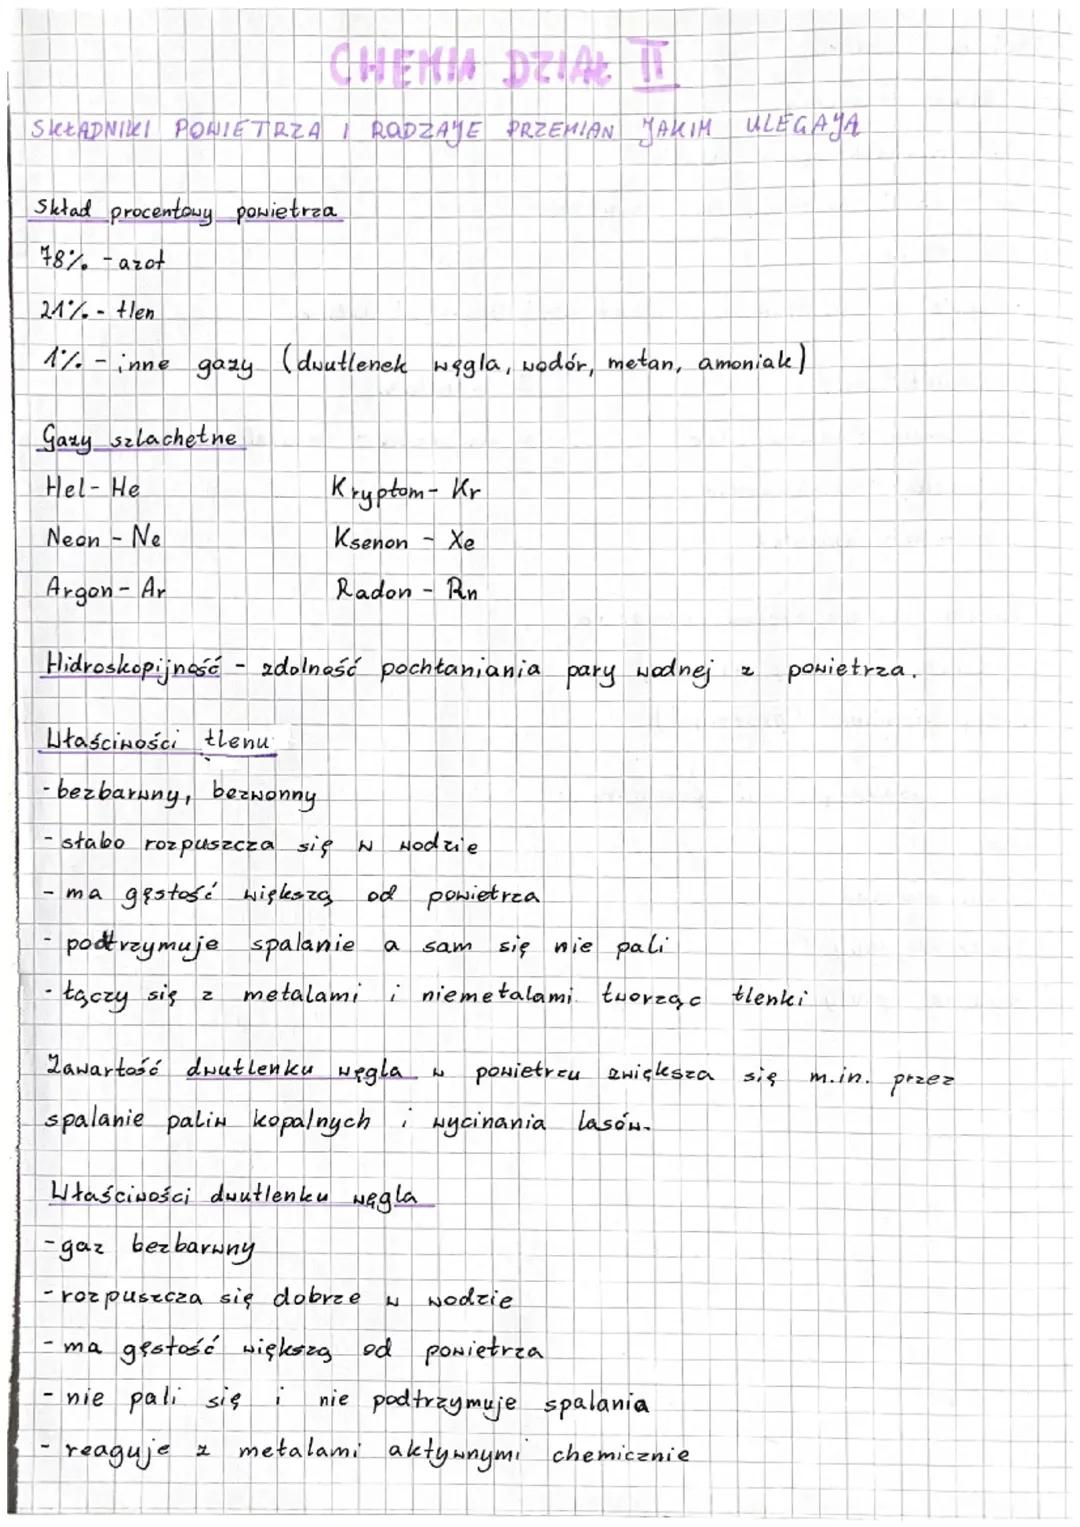 CHEMIA DZIAŁ II
SKŁADNIKI POWIETRZA I RODZAJE PRZEMIAN JAKIM ULEGAJĄ
Skład procentowy powietrza
78% - azot
21% - tlen
1% - inne gazy (dwutlenek węgla, wodór, metan, amoniak)
Gazy szlachetne
Hel - He Kryptom - Kr
Neon - Ne Ksenon - Xe
Argon - Ar Radon - Rn
Hidroskopijność - zdolność pochłaniania pary wodnej z powietrza.
Właściwości tlenu
- bezbarwny, bezwonny
- słabo rozpuszcza się w wodzie
- ma gęstość większą od powietrza
- podtrzymuje spalanie a sam się nie pali
- łączy się z metalami i niemetalami tworząc tlenki
Zawartość dwutlenku węgla w powietrzu zwiększa się m.in. przez
spalanie paliw kopalnych i wycinania lasów.
Właściwości dwutlenku węgla
- gaz bezbarwny
- rozpuszcza się dobrze w wodzie
- ma gęstość większą od powietrza
- nie pali się i nie podtrzymuje spalania
- reaguje z metalami aktywnymi chemicznie